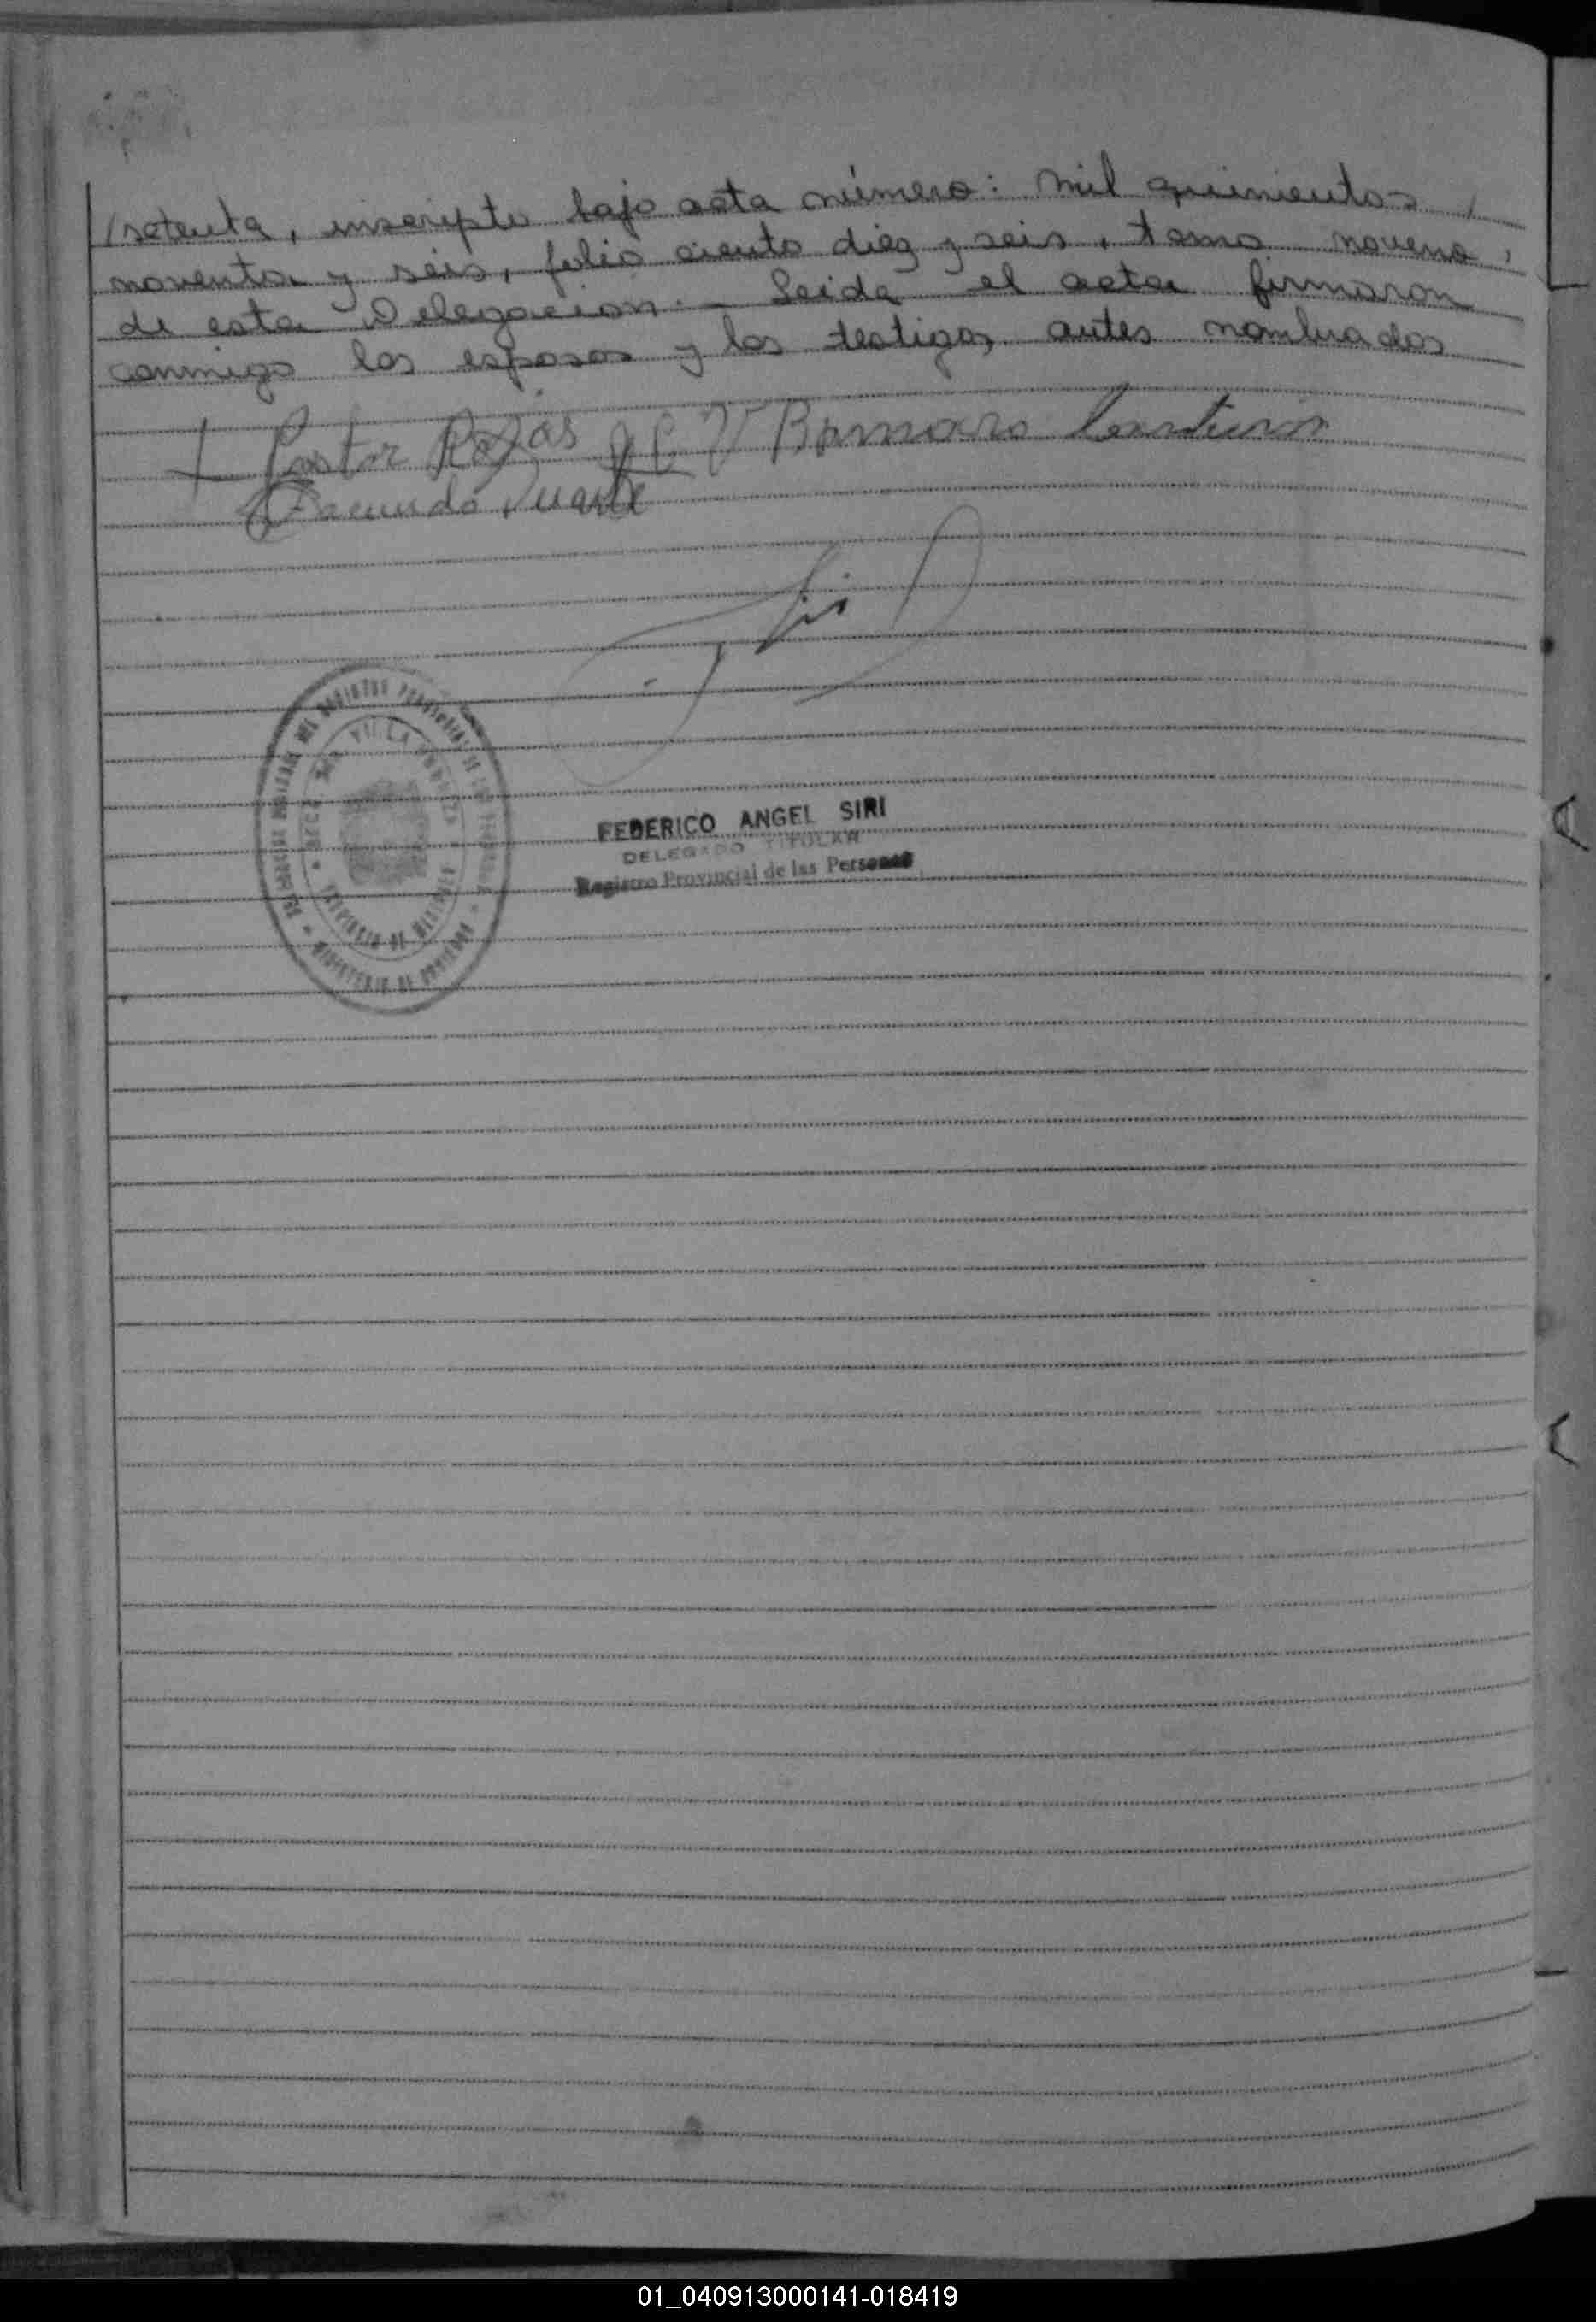 /setenta, inscripto bajo acta número: mil quinientos /
noventa y seis, folio ciento diez y seis, tomo noveno,
de esta Delegacion.- Leida el acta firmaron
conmigo los esposos y los testigos antes nombrados
Pastor Rojas
Facundo Duarte
FEDERICO ANGEL SIRI
DELEGADO TITULAR
Registro Provincial de las Personas
01_040913000141-018419